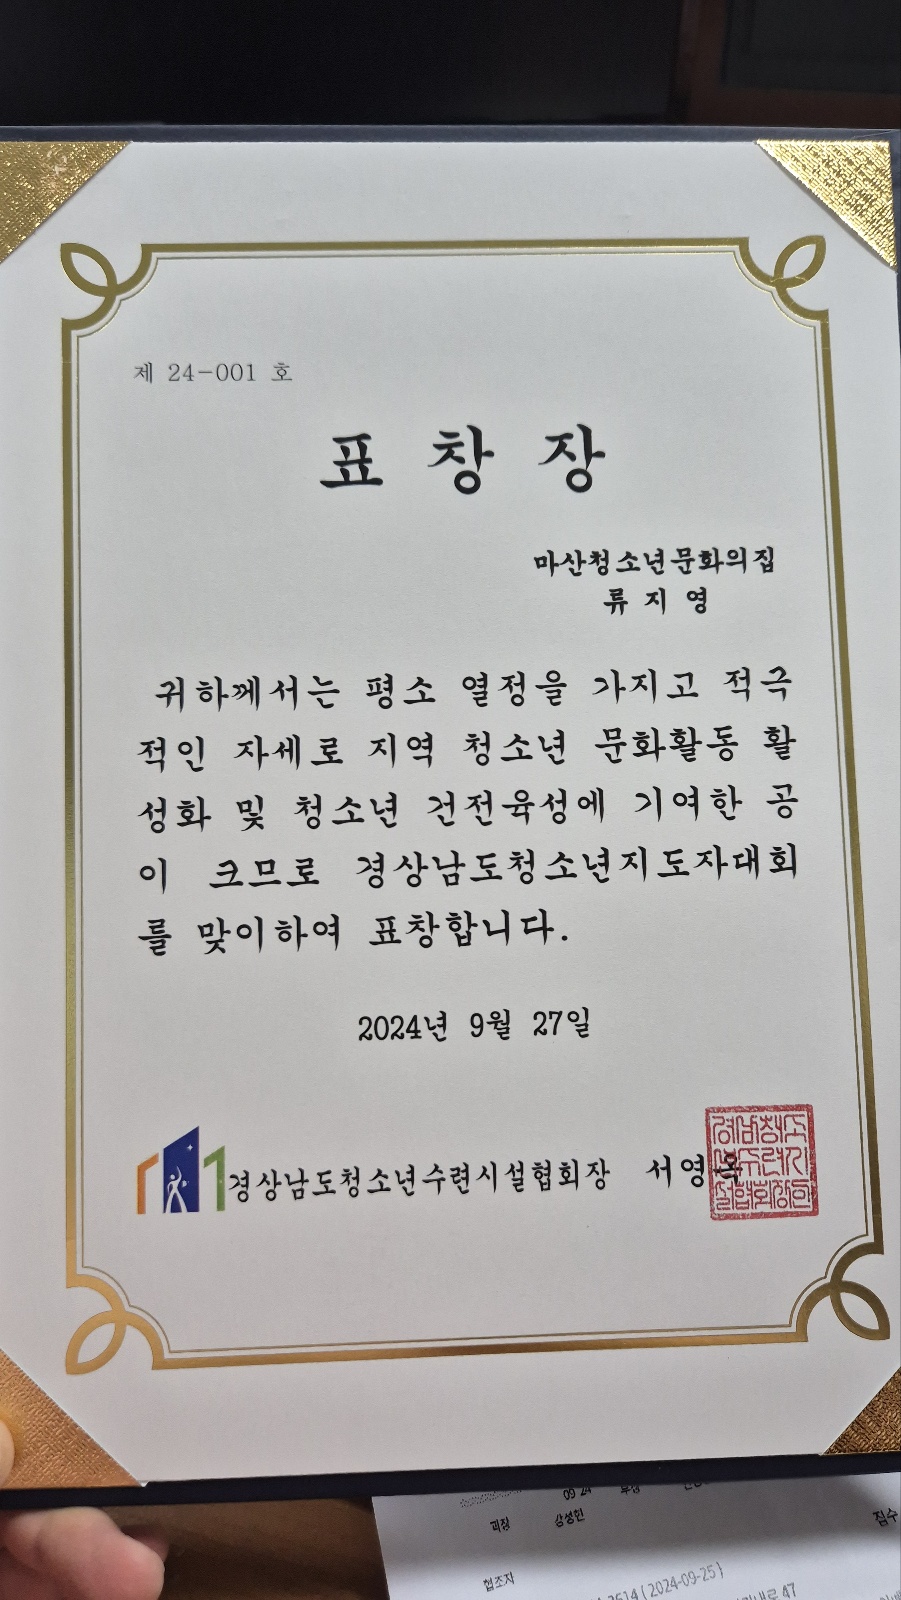 제 24-001 호
표 창 장
마산청소년문화의집
류 지 영
귀하께서는 평소 열정을 가지고 적극
적인 자세로 지역 청소년 문화활동 활
성화 및 청소년 건전육성에 기여한 공
이 크므로 경상남도청소년지도자대회
를 맞이하여 표창합니다.
2024년 9월 27일
경상남도청소년수련시설협회장 서영옥
경남청소
년수련시
설협회장인
과장 강성헌
접수
협조자
3514 ( 2024-09-25 )
47